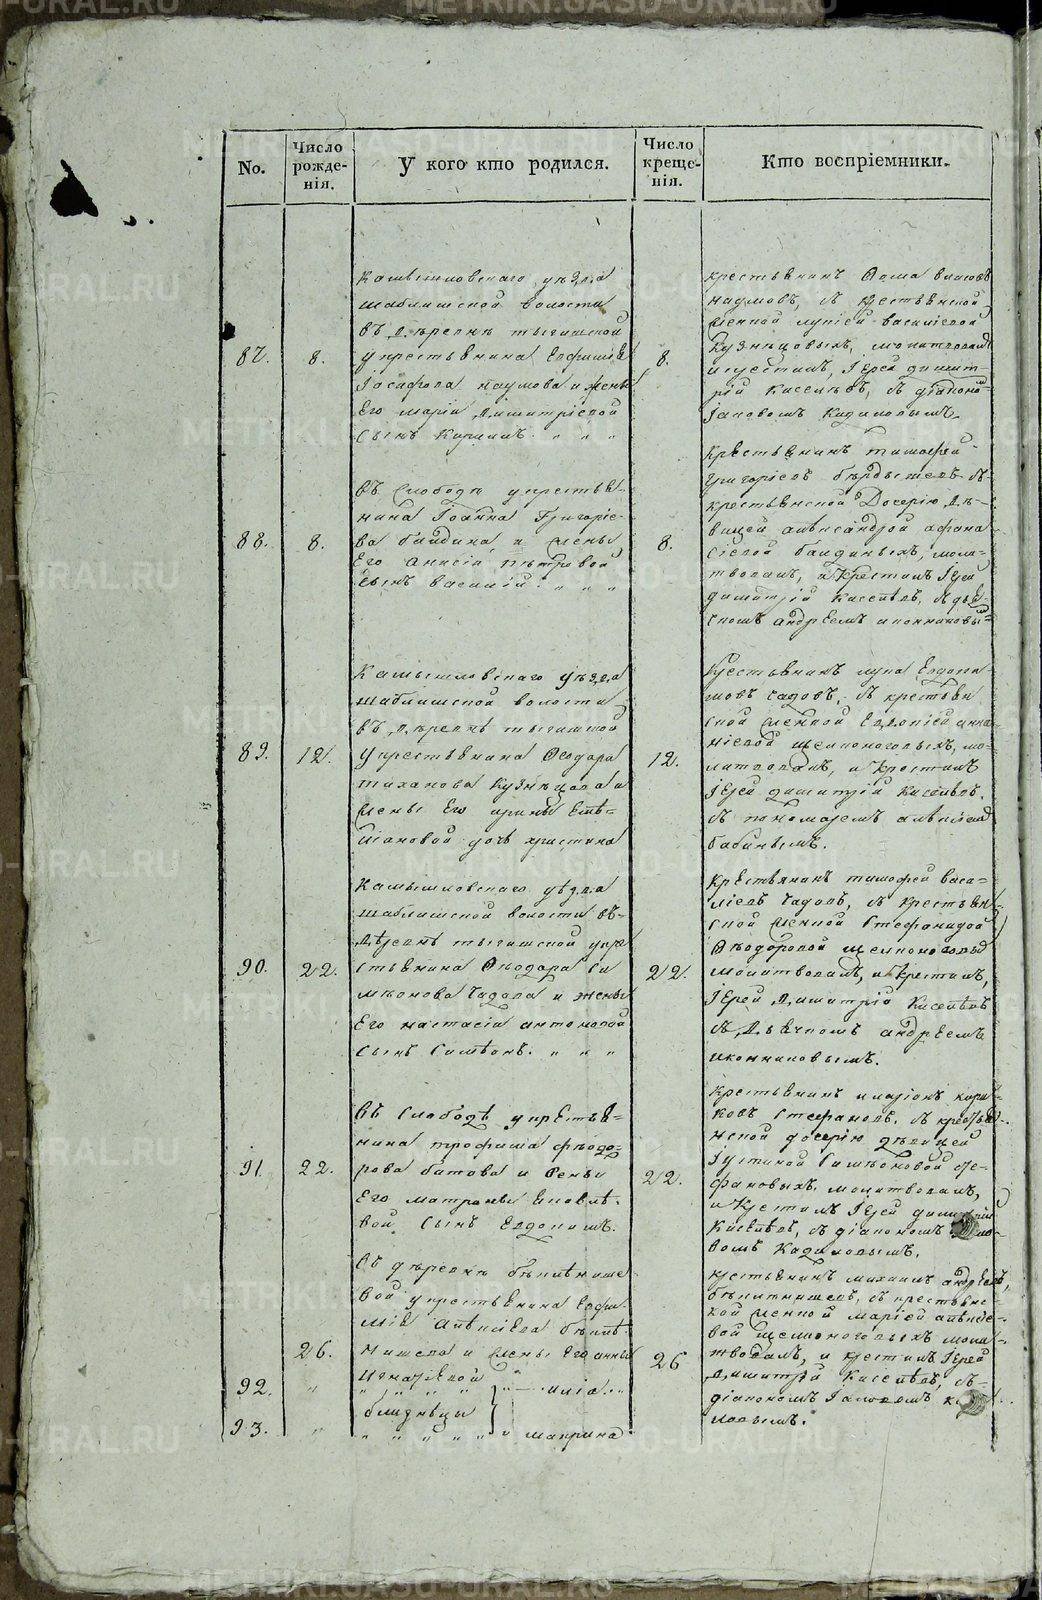 No.
Число рожде-
нія.
У кого кто родился.
Число креще-
нія.
Кто воспріемники.
87.
8.
Камышловскаго уѣзда
шаблишской волости
въ деревнѣ тыгишской
у крестьянина Евфимія
Іоасафова наумова и жены
Его маріи Димитріевой
сынъ Кирилъ. " " "
8.
крестьянинъ Фома власовъ
наумовъ, съ крестьянской
женкой
Кузнецовыхъ, молитвовалъ
и крестилъ, Іерей димит-
рій Киселевъ, съ діакономъ
Іаковомъ Кадиловымъ.
88.
8.
въ Слободѣ у крестья-
нина Іоанна Григоріе-
ва байдина, и жены
Его Анисіи Петровой
сынъ василій. " " "
8.
Крестьянинъ тимофей
григоріевъ съ
крестьянской Дочерію дѣ-
вицей александрой афана-
сіевой байдиныхъ, моли-
твовалъ, и Крестилъ Іерей
димитрій Киселевъ, съ дья-
комъ андреемъ иконниковы-
89.
12.
Камышловскаго уѣзда
шаблишской волости
въ деревнѣ тыгишской
у крестьянина Ѳеодора
тиханова Кузнецова и
жены Его ирины Емѣ-
ліановой дочь христина
12.
Крестьянинъ лука Евдоки-
мовъ Чадовъ, съ крестьян
ской женкой Евдокіей анна-
ніевой щелконоговыхъ, мо-
литвовалъ, и Крестилъ
Іерей димитрій Киселевъ.
съ пономаремъ алексіемъ
бабинымъ.
90.
22.
Камышловскаго уѣзда
шаблишской волости въ
деревнѣ тыгишской у кре
стьянина Ѳеодора Си
меонова Чадова и жены
Его настасіи антоновой
сынъ Симеонъ. " " "
22.
Крестьянинъ тимофей васи-
ліевъ Чадовъ, съ крестьян
ской женкой Стефанидой
Ѳеодоровой щелконоговы
молитвовалъ, и Крестилъ,
Іерей Димитрій Киселевъ
съ Дьячкомъ андреемъ
иконниковымъ.
91.
22.
въ Слободѣ у крестья-
нина трофима фѣодо-
рова батова и жены
Его матроны Яковле-
вой Сынъ Евдокимъ.
22.
Крестьянинъ иларіонъ
Стефановъ, съ кресть
янской дочерію дѣвицей
Іустиной Симеоновой сте-
фановыхъ. молитвовалъ,
и Крестилъ Іерей димитрій
Киселевъ, съ діакономъ Іако-
вомъ Кадиловымъ.
26.
Въ деревнѣ
вой у крестьянина Евфи-
мія Алексіева
и жены Его анны
Игнатьевой
92.
" " " " " — илія "
близнецы
93.
" " " " " " макрина
26
крестьянинъ михаилъ андреевъ,
съ крестьянс-
кой женкой маріей алексіе-
вой щелконоговыхъ моли-
твовалъ, и крестилъ Іерей
Димитрій Киселевъ, съ
діакономъ Іаковомъ ка
ловымъ.
METRIKI.GASO-URAL.RU